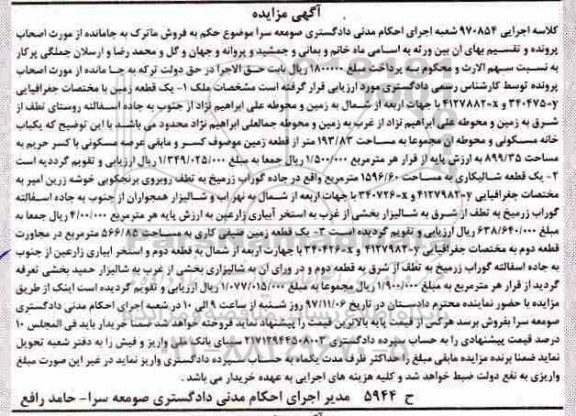 آگهی مزایده
کلاسه اجرایی ۹۷۰۸۵۴ شعبه اجرای احکام مدنی دادگستری صومعه سرا موضوع حکم به فروش ماترک به جامانده از مورث اصحاب
پرونده و تقسیم بهای ان بین ورثه به اسامی ماه خانم و یمانی و جمشید و پروانه و جهان و گل و محمد رضا و ارسلان جملگی پرکار
به نسبت سهم الارث و محکوم به پرداخت مبلغ ۱۸۰۰۰۰۰ ریال بابت حق الاجرا در حق دولت ترکه به جا مانده از مورث اصحاب
پرونده توسط کارشناس رسمی دادگستری مورد ارزیابی قرار گرفته است مشخصات ملک ۱- یک قطعه زمین با مختصات جغرافیایی
۳۴۰۴۷۵-y و ۴۱۲۷۸۸۲-x با جهات اربعه از شمال به زمین و محوطه علی ابراهیم نژاد از جنوب به جاده اسفالته روستای نطف از
شرق به زمین و محوطه علی ابراهیم نژاد از غرب به زمین و محوطه جمالعلی ابراهیم نژاد محدود می باشد با این توضیح که یکباب
خانه مسکونی و محوطه ان مجموعا به مساحت ۱۹۳/۸۳ متر از قطعه زمین موصوف کسر و مابقی عرصه مسکونی با کسر حریم به
مساحت ۸۹۹/۳۵ به ارزش پایه از قرار هر مترمربع ۱/۵۰۰/۰۰۰ ریال جمعا به مبلغ ۱/۳۴۹/۰۲۵/۰۰۰ ریال ارزیابی و تقویم گردیده است
۲- یک قطعه شالیکاری به مساحت ۱۵۹۶/۶۰ مترمربع واقع در جاده گوراب زرمیخ به نطف روبروی برنجکوبی خوشه زرین امیر به
مختصات جغرافیایی ۴۱۲۷۹۸۲-y و ۳۴۰۷۲۶-x با جهات اربعه از شمال به نهر اب و شالیزار همجواران از جنوب به جاده اسفالته
گوراب زرمیخ به نطف از شرق به شالیزار بخشی از غرب به استخر آبیاری زارعین به ارزش پایه هر مترمربع ۴/۰۰/۰۰۰ ریال جمعا به
مبلغ ۶۳۸/۶۴۰/۰۰۰ ریال ارزیابی و تقویم گردیده است ۳- یک قطعه زمین صیفی کاری به مساحت ۵۶۶/۸۵ مترمربع در مجاورت
قطعه دوم به مختصات جغرافیایی ۴۱۲۷۹۸۲-y و ۳۴۰۴۲۶-x با جهات اربعه از شمال به قطعه دوم و استخر ابیاری زارعین از جنوب
به جاده اسفالته گوراب زرمیخ به نطف از شرق به قطعه دوم و در ورای آن به شالیزاری بخشی از غرب به شالیزار حمید بخشی تعرفه
گردید از قرار هر مترمربع به مبلغ ۱/۹۰۰/۰۰۰ ریال مجموعا به مبلغ ۱/۰۷۷/۰۱۵/۰۰۰ ریال ارزیابی و تقویم گردیده است اینک از طریق
مزایده با حضور نماینده محترم دادستان در تاریخ ۹۷/۱۱/۰۶ روز شنبه از ساعت ۹ الی ۱۰ در شعبه اجرای احکام مدنی دادگستری
صومعه سرا بفروش برسد هرکس از قیمت پایه بالاترین قیمت را پیشنهاد نماید فروخته خواهد شد ضمنا خریدار باید فی المجلس ۱۰
درصد قیمت پیشنهادی را به حساب سپرده دادگستری ۲۱۷۱۲۹۴۴۵۰۸۰۰۳ سیبای بانک ملی واریز و فیش را به دفتر شعبه تحویل
نماید ضمنا برنده مزایده مابقی مبلغ را حداکثر ظرف مدت یکماه به حساب سپرده دادگستری واریز نماید در غیر این صورت مبلغ
واریزی به نفع دولت ضبط خواهد شد و کلیه هزینه های اجرایی به عهده خریدار می باشد .
ح ۵۹۴۴ مدیر اجرای احکام مدنی دادگستری صومعه سرا- حامد رافع